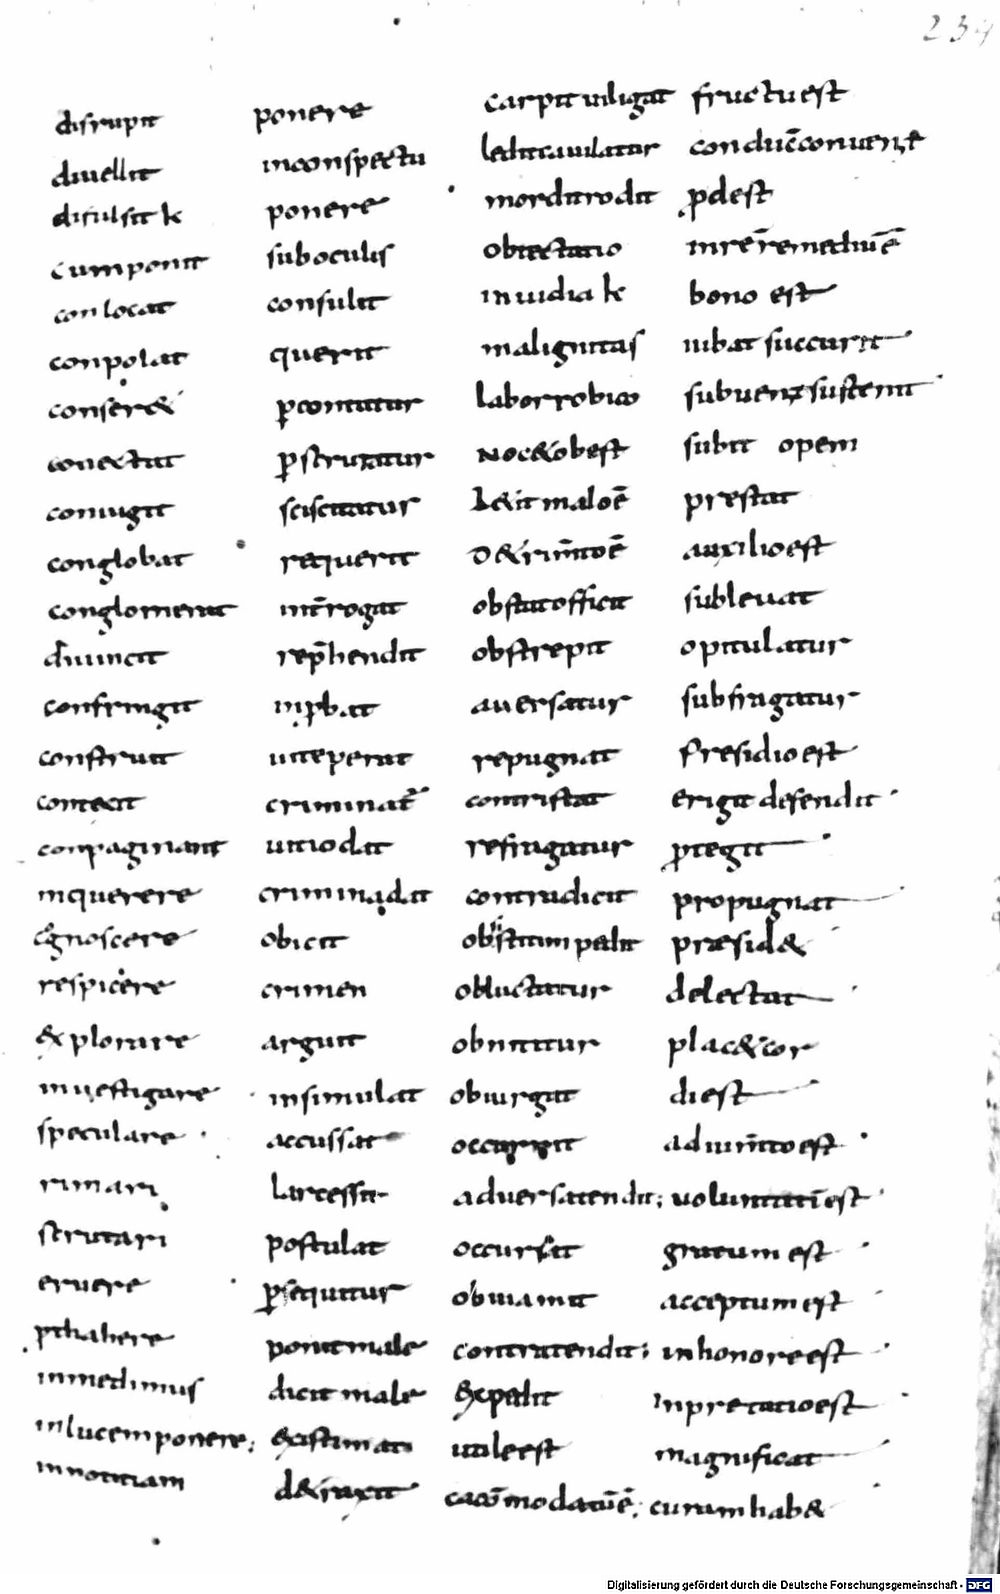 234
disrupit
diuellit
difulsit k
cumponit
conlocat
conpolat
conser&
conectit
coniugit
conglobat
conglomerat
diuincit
confringit
construit
contecit
conpaginant
inquerere
cognoscere
respicere
&plorare
inuestigare
speculare
rimari
scrutari
eruere
pthahere
inmedimus
inlucemponere;
innotitiam
ponere
inconspectu
ponere
suboculis
consulit
querit
p̱contatur
p̱scrutatur
sciscitatur
requerit
int̄rogat
rep̄hendit
inp̱bat
uiteperat
criminat̄
uitiodat
criminadit
obicit
crimen
arguit
insimulat
accussat
larcessit
postulat
p̱sequitur
ponitmale
dicit male
&istimat
d&raxit
carpit uiligat
leditcauilatur
morditrodit
obtectatio
inuidia k
malignitas
laborrobico
noc&obest
l&it maloē
d&rim̄toē
obstatofficit
obstrepit
auersatur
repugnat
contristat
refragatur
contradicit
obstitimpedit
obluctatur
obnititur
obiurgat
occurrit
aduersatendit;
occursat
obuiamit
contratendit;
&pedit
utileest
cacōmodatūē;
fructuest
conducc̄onuenit
p̱dest
inrēremediūē
bono est
iubat succurit
subuenitsustenit
subit opem
prestat
auxilioest
subleuat
opitulatur
subfragatur
presidioest
erigit defendit
p̱tegit
propugnat
præsid&
delectat
plac&cor
diest
adium̄toest
uoluntatiēst
gratum est
acceptumest
inhonoreest
inpretatioest
magnificat
curamhab&
Digitalisierung gefördert durch die Deutsche Forschungsgemeinschaft - DFG